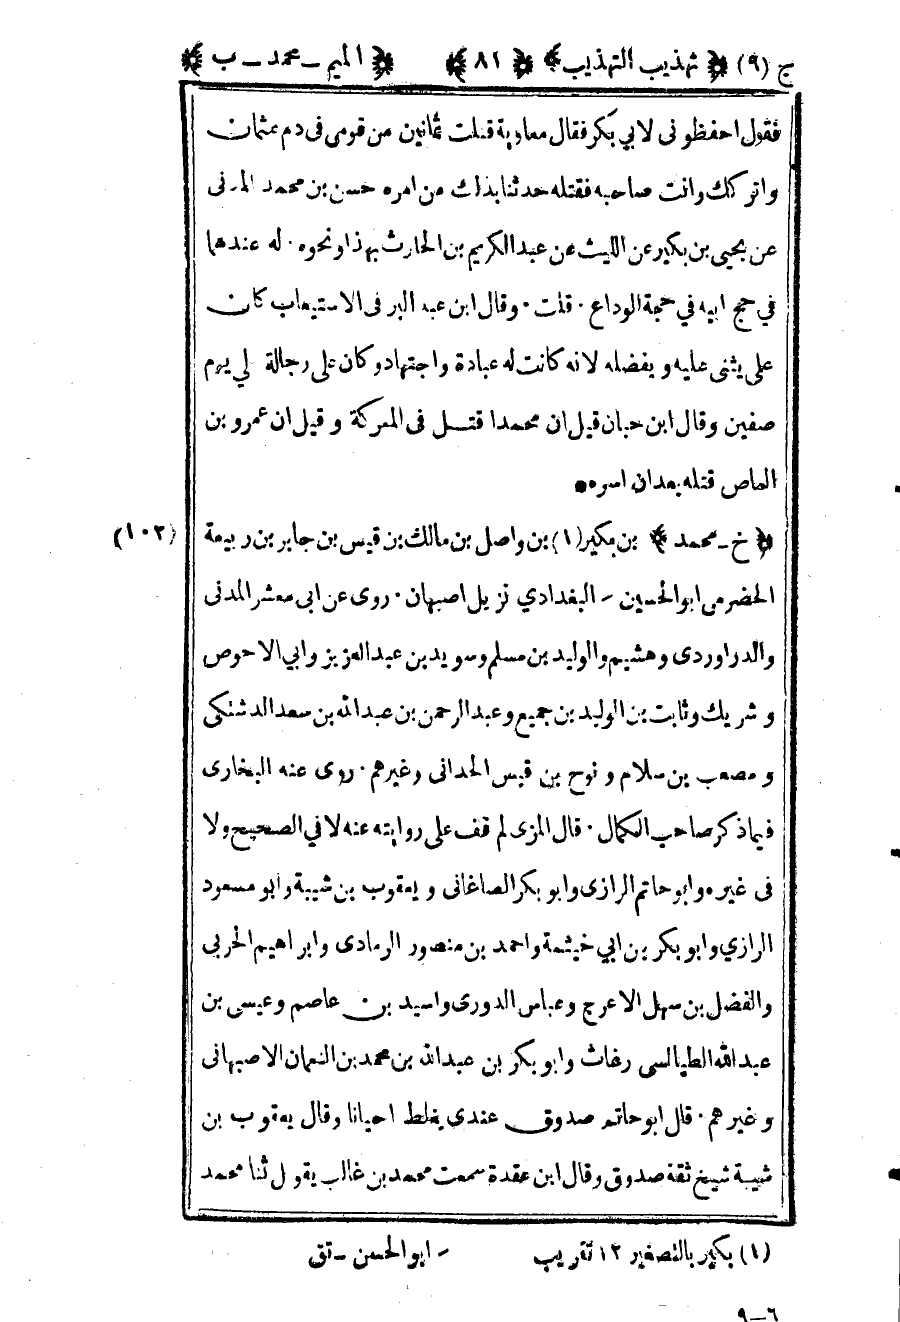 ج (٩) ﴿ تهذيب التهذيب ﴾ ﴿ ٨١ ﴾ ﴿ الميم - محمد - ب ﴾
فقول احفظونى لابي بكر فقال معاوية قتلت ثمانين من قومى فى دم عثمان
واتركك وانت صاحبه فقتله حدثنا بذلك من امره حسن بن محمد المدنى
عن يحيى بن بكير عن الليث عن عبدالكريم بن الحارث بهذا ونحوه · له عندهما
في حج ابيه في حجة الوداع · قلت · وقال ابن عبد البر فى الاستيعاب كان
على يثنى عليه و يفضله لانه كانت له عبادة واجتهاد وكان على رجالة علي يوم
صفين وقال ابن حبان قيل ان محمدا قتل فى المعركة و قيل ان عمرو بن
العاص قتله بعد ان اسره●
﴿ خ - محمد ﴾ بن بكير (١) بن واصل بن مالك بن قيس بن جابر بن ربيعة (١٠٢)
الحضرمى ابوالحسين - البغدادي نزيل اصبهان · روى عن ابى معشر المدنى
والدراوردى وهشيم والوليد بن مسلم وسويد بن عبدالعزيز وابي الاحوص
و شريك وثابت بن الوليد بن جميع وعبدالرحمن بن عبدالله بن سعد الدشتكى
و مصعب بن سلام و نوح بن قيس الحدانى وغيرهم · روى عنه البخارى
فيما ذكر صاحب الكمال · قال المزى لم قف على روايته عنه لا في الصحيح ولا
فى غيره وابو حاتم الرازى وابو بكر الصاغانى و يعقوب بن شيبة وابو مسعود
الرازي وابو بكر بن ابي خيثمة واحمد بن منصور الرمادى وابراهيم الحربى
والفضل بن سهل الاعرج وعباس الدورى واسيد بن عاصم وعيسى بن
عبدالله الطيالسى رغاث وابو بكر بن عبدالله بن محمد بن النعمان الاصبهانى
و غيرهم · قال ابو حاتم صدوق عندى يغلط احيانا وقال يعقوب بن
شيبة شيخ ثقة صدوق وقال ابن عقدة سمعت محمد بن غالب يقول ثنا محمد
(١) بكير بالتصغير ١٢ تقريب - ابوالحسن - تق
٩-٦